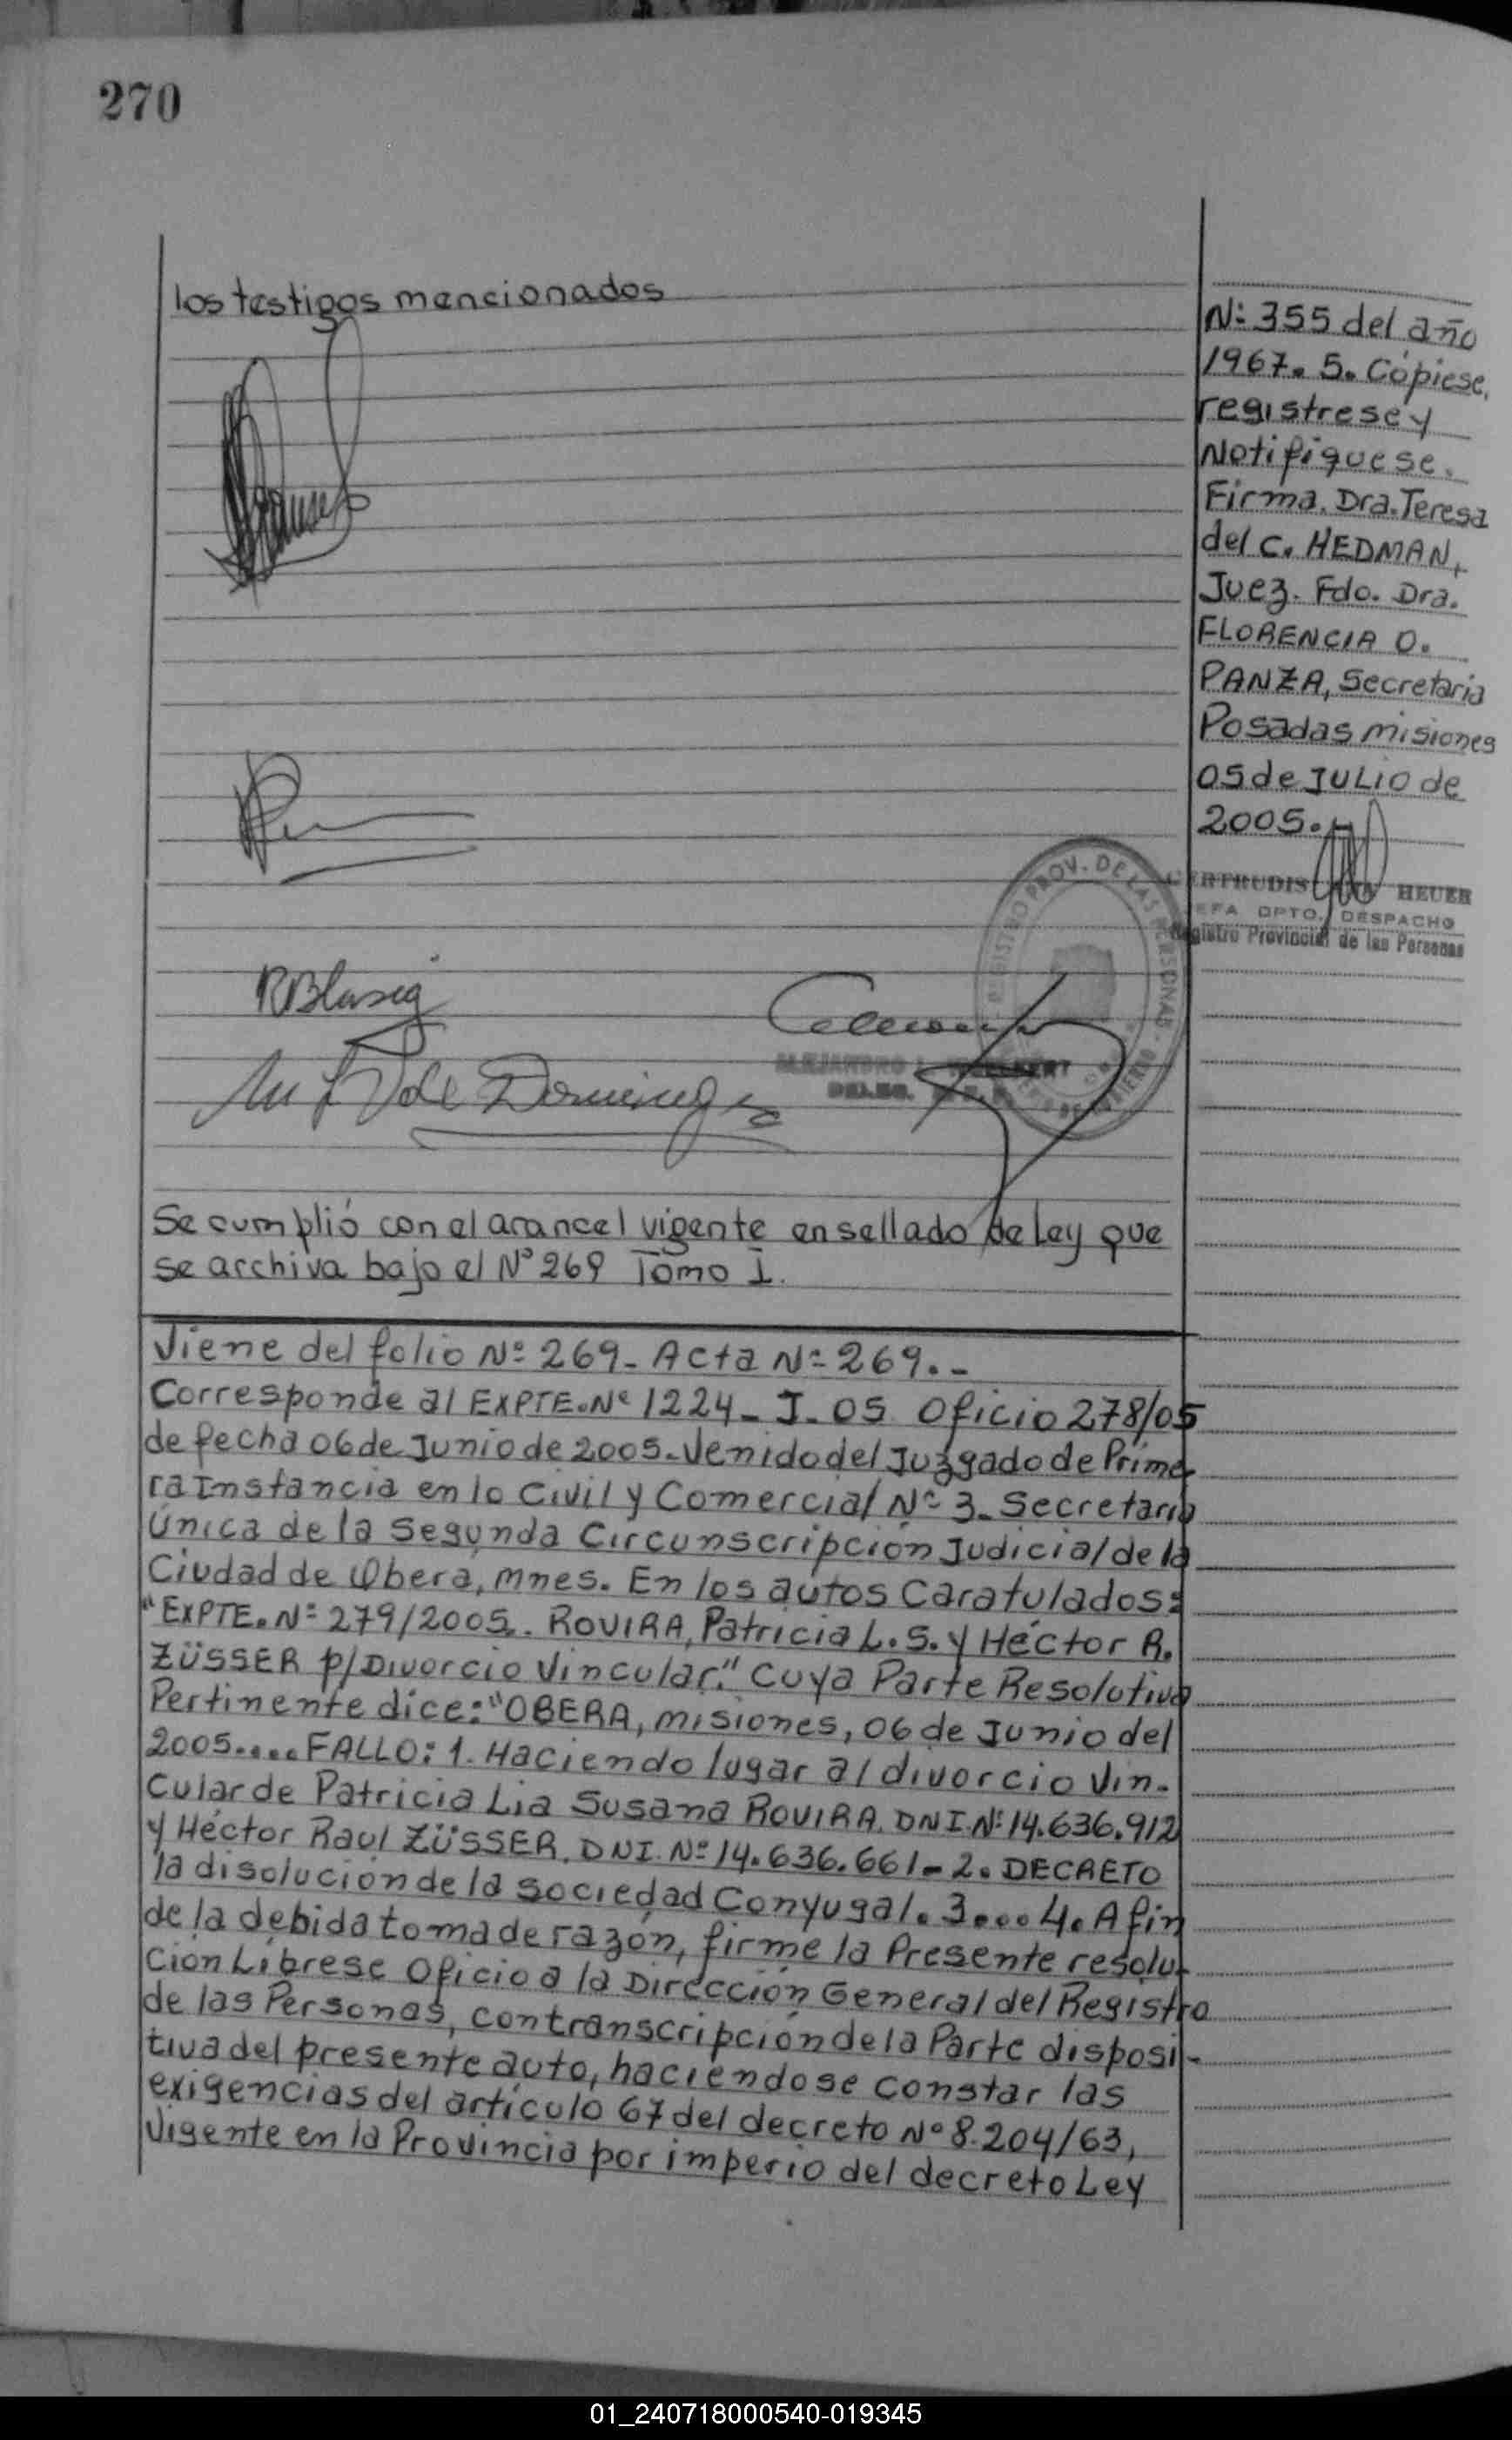 270
los testigos mencionados
RBlasig
de Dominguez
ALEJANDRO
Se cumplió con el arancel vigente en sellado de Ley que
se archiva bajo el Nº 269 Tomo I.
Viene del folio Nº 269- Acta Nº 269.-
Corresponde al EXPTE. Nº 1224- J- 05 Oficio 278/05
de fecha 06 de Junio de 2005- Venido del Juzgado de Prime
ra Instancia en lo Civil y Comercial Nº 3- Secretaria
Única de la Segunda Circunscripción Judicial de la
Ciudad de Obera, Mnes. En los autos Caratulados:
"EXPTE. Nº 279/2005. ROVIRA, Patricia L. S. y Héctor R.
ZÜSSER p/Divorcio Vincular." Cuya Parte Resolutiva
Pertinente dice: "OBERA, Misiones, 06 de Junio del
2005.... FALLO: 1. Haciendo lugar al divorcio Vin-
cular de Patricia Lia Susana ROVIRA. DNI. Nº 14.636.912
y Héctor Raúl ZÜSSER. DNI. Nº 14.636.661- 2. DECRETO
la disolución de la Sociedad Conyugal. 3.... 4. A fin
de la debida toma de razón, firme la Presente resolu-
ción Líbrese Oficio a la Dirección General del Registro
de las Personas, con transcripción de la Parte disposi-
tiva del presente auto, haciéndose constar las
exigencias del artículo 67 del decreto Nº 8.204/63,
Vigente en la Provincia por imperio del decreto Ley
Nº 355 del año
1967. 5. Cópiese,
registrese y
Notifiquese.
Firma. Dra. Teresa
del C. HEDMAN,
Juez. Fdo. Dra.
FLORENCIA O.
PANZA, Secretaria
Posadas Misiones
05 de JULIO de
2005.-
GERTRUDIS HEUER
JEFA DPTO. DESPACHO
Registro Provincial de las Personas
REGISTRO PROV. DE LAS PERSONAS
01_240718000540-019345